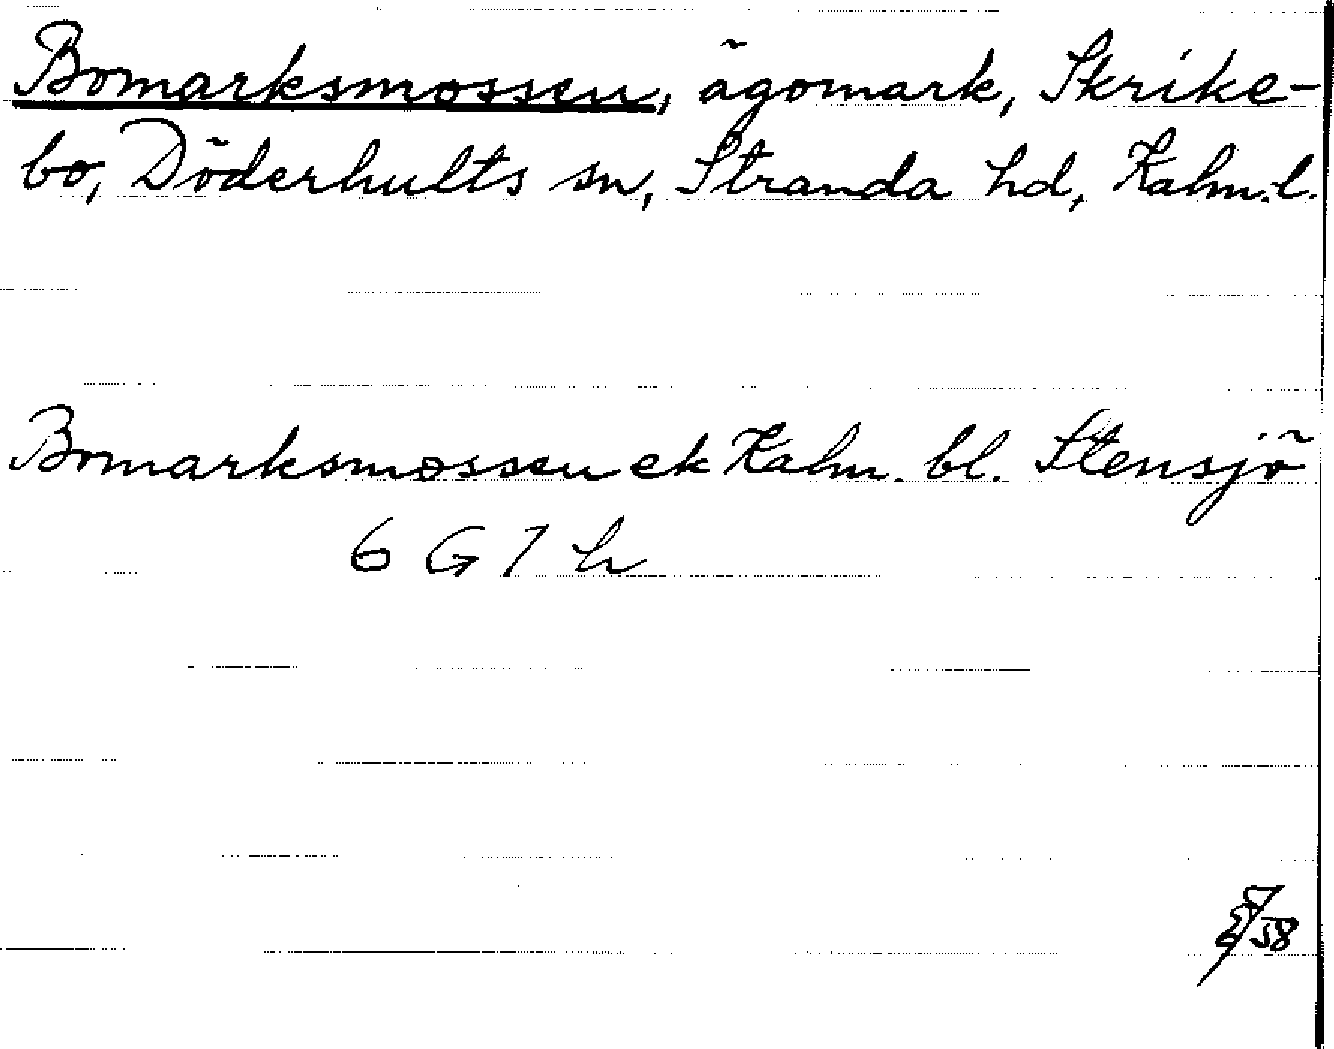 Bomarksmossen, ägomark, Skrike-
bo, Döderhults sn, Stranda hd, Kalm.l.
Bomarksmossen ek Kalm. bl. Stensjö
6 G 7 h
58